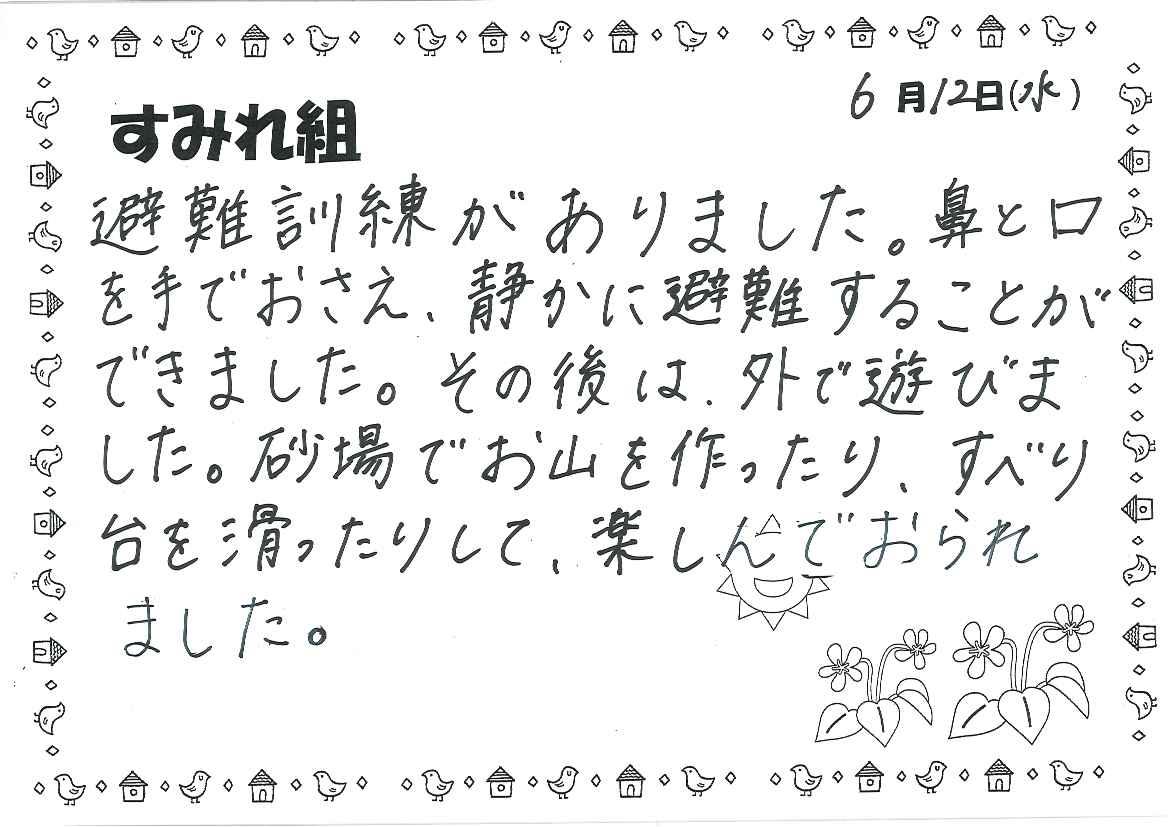 6月12日(水)
すみれ組
避難訓練がありました。鼻と口
を手でおさえ、静かに避難することが
できました。その後は、外で遊びま
した。砂場でお山を作ったり、すべり
台を滑ったりして、楽しんでおられ
ました。